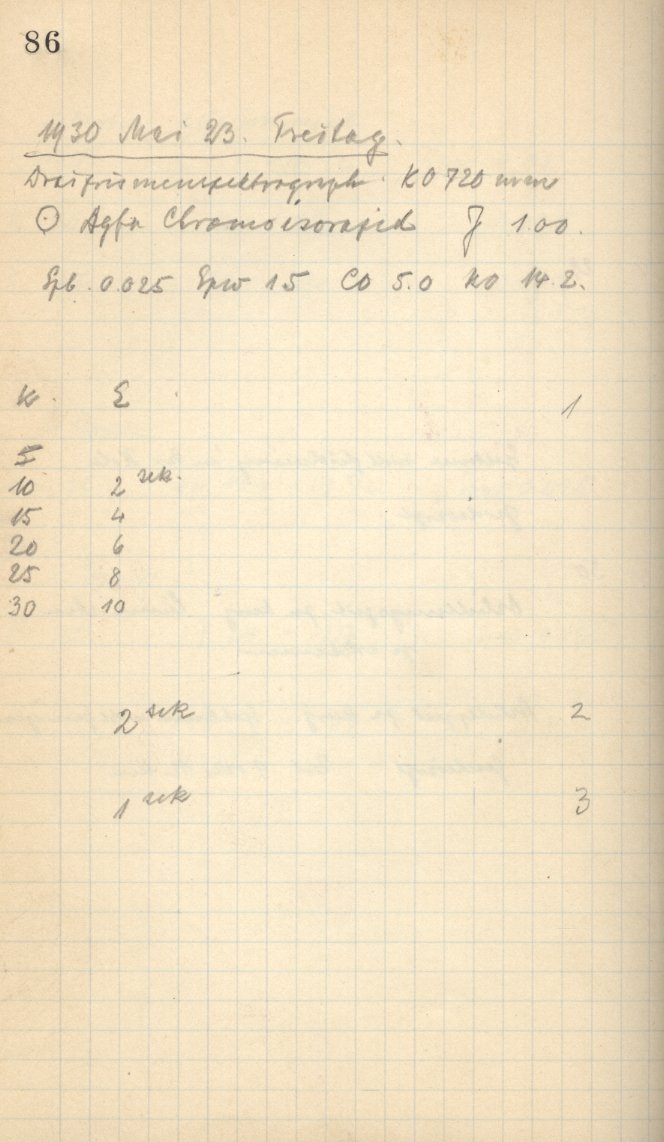 86
1930 Mai 23. Freitag.
Dreiprismenspektrograph KO 720 mm
☉ Agfa Chromoisorapid J 1.00.
Spb. 0.025 Spw 15 CO 5.0 KO 14.2.
K. E 1
5
10 2 sek.
15 4
20 6
25 8
30 10
2 sek 2
1 sek 3